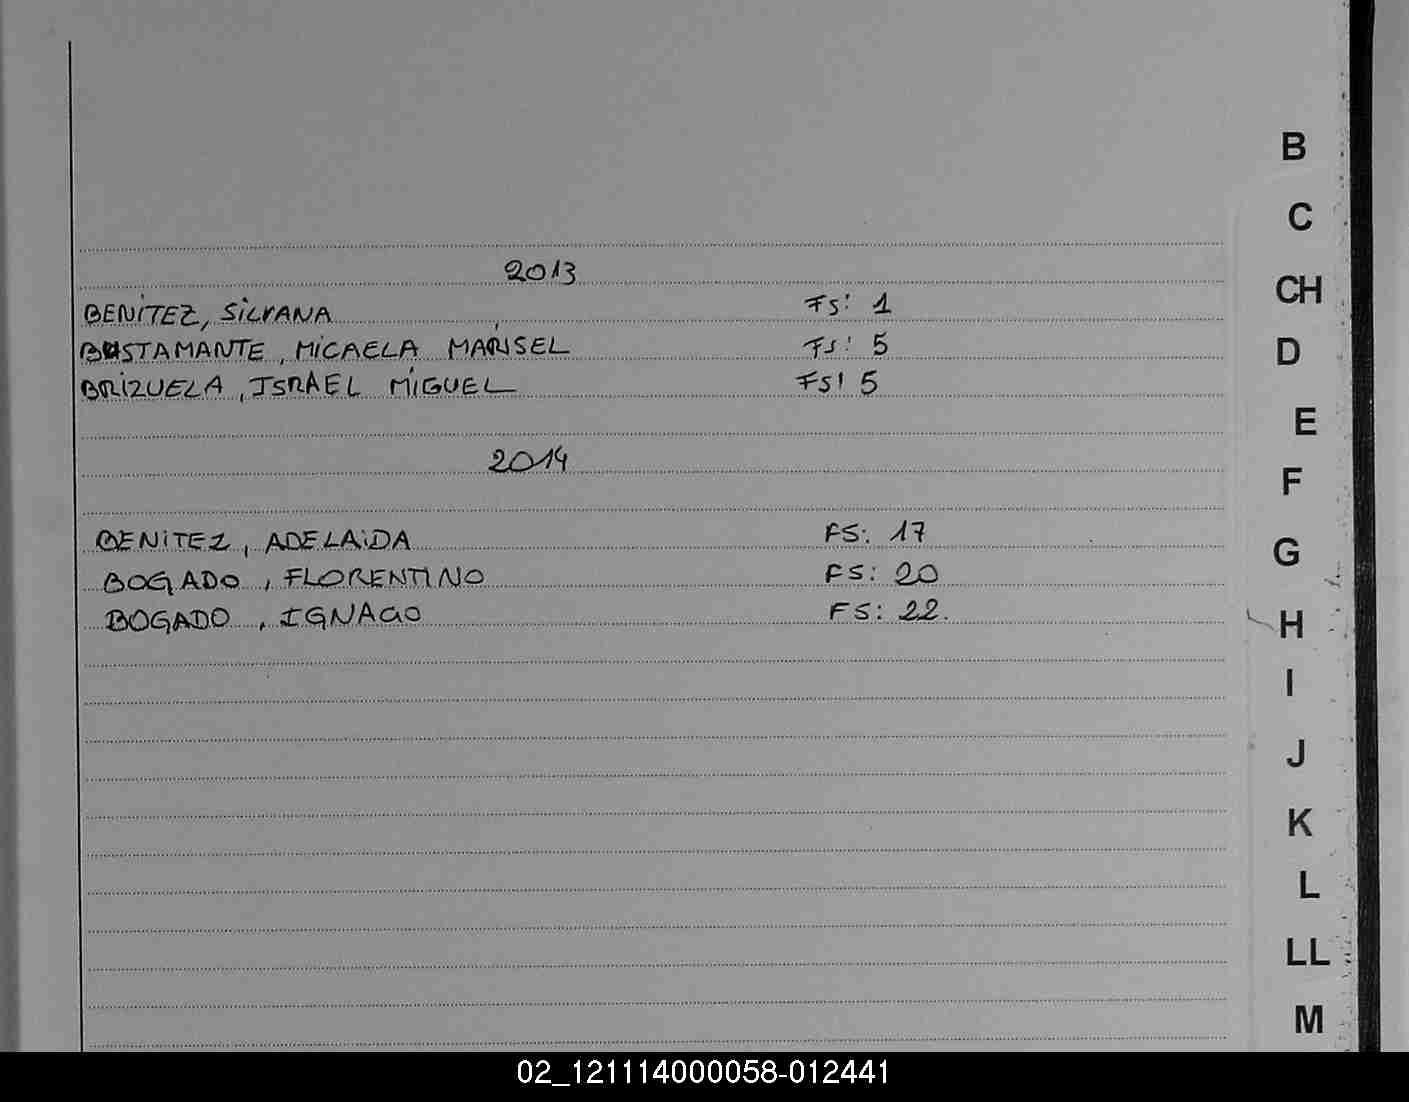 2013
BENITEZ, SILVANA FS: 1
BUSTAMANTE, MICAELA MARISEL FS: 5
BRIZUELA, ISRAEL MIGUEL FS: 5
2014
BENITEZ, ADELAIDA FS: 17
BOGADO, FLORENTINO FS: 20
BOGADO, IGNACIO FS: 22.
B
C
CH
D
E
F
G
H
I
J
K
L
LL
M
02_121114000058-012441